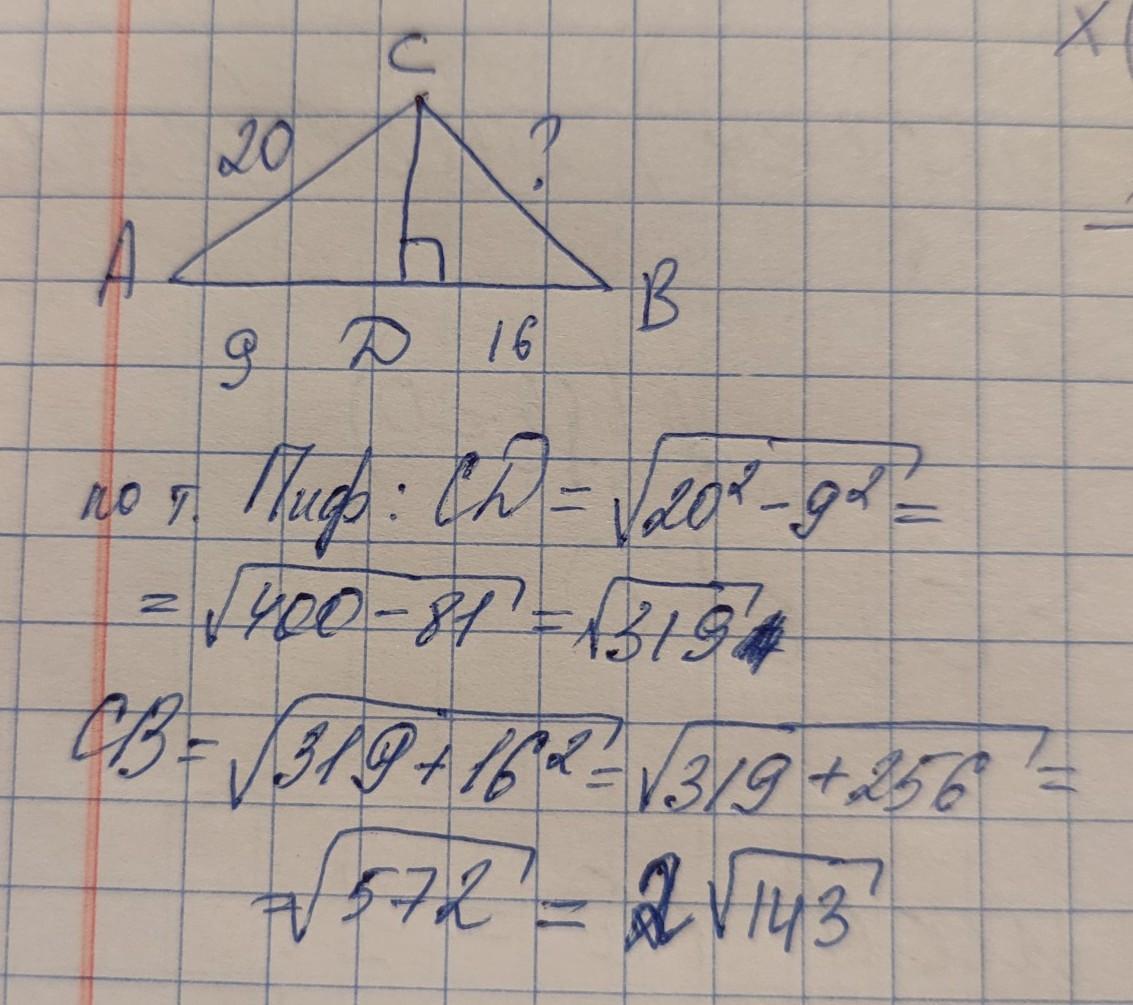 C
20 ?
A B
9 D 16
по т. Пиф: CD = √20² - 9² =
= √400 - 81 = √319
CB = √319 + 16² = √319 + 256 =
= √572 = 2√143